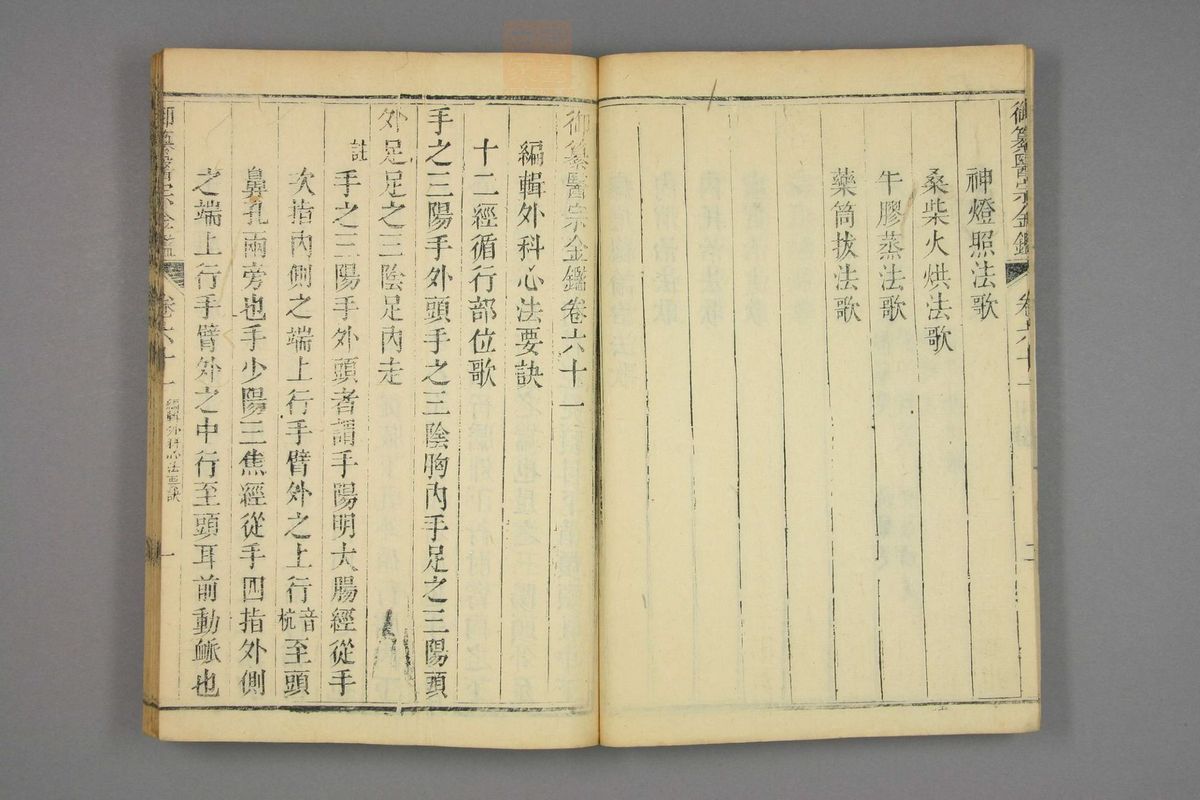 御纂醫宗金鑑 卷六十一 二
神燈照法歌
桑柴火烘法歌
牛膠蒸法歌
藥筒拔法歌
御纂醫宗金鑑卷六十一
編輯外科心法要訣
十二經循行部位歌
手之三陽手外頭手之三陰胸內手足之三陽頭
外足足之三陰足內走
註手之三陽手外頭者謂手陽明大腸經從手
次指內側之端上行手臂外之上行音杭至頭
鼻孔兩旁也手少陽三焦經從手四指外側
之端上行手臂外之中行至頭耳前動脈也
御纂醫宗金鑑 卷六十一 編輯外科心法要訣 一